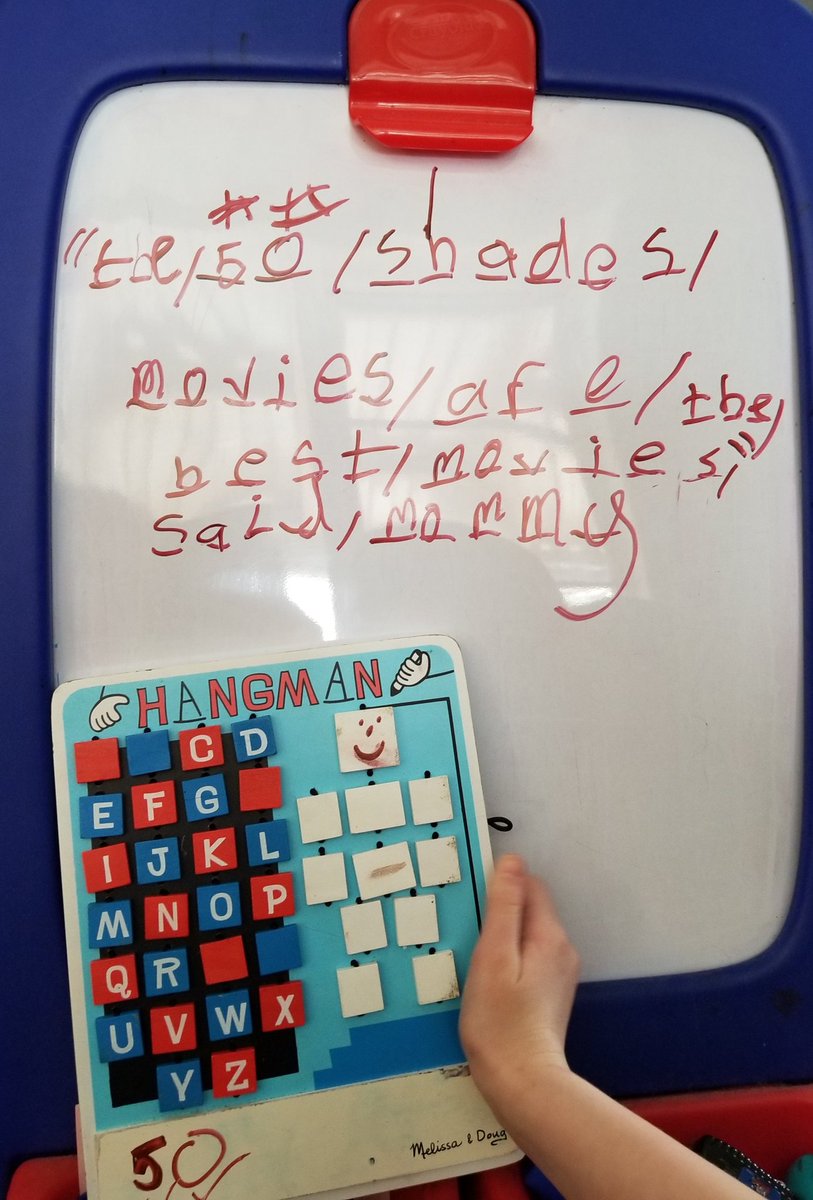 "the/50/shades/
movies/are/the/
best/movies/"
said/mommy
HANGMAN
C D
E F G
I J K L
M N O P
Q R
U V W X
Y Z
50/
Melissa & Doug